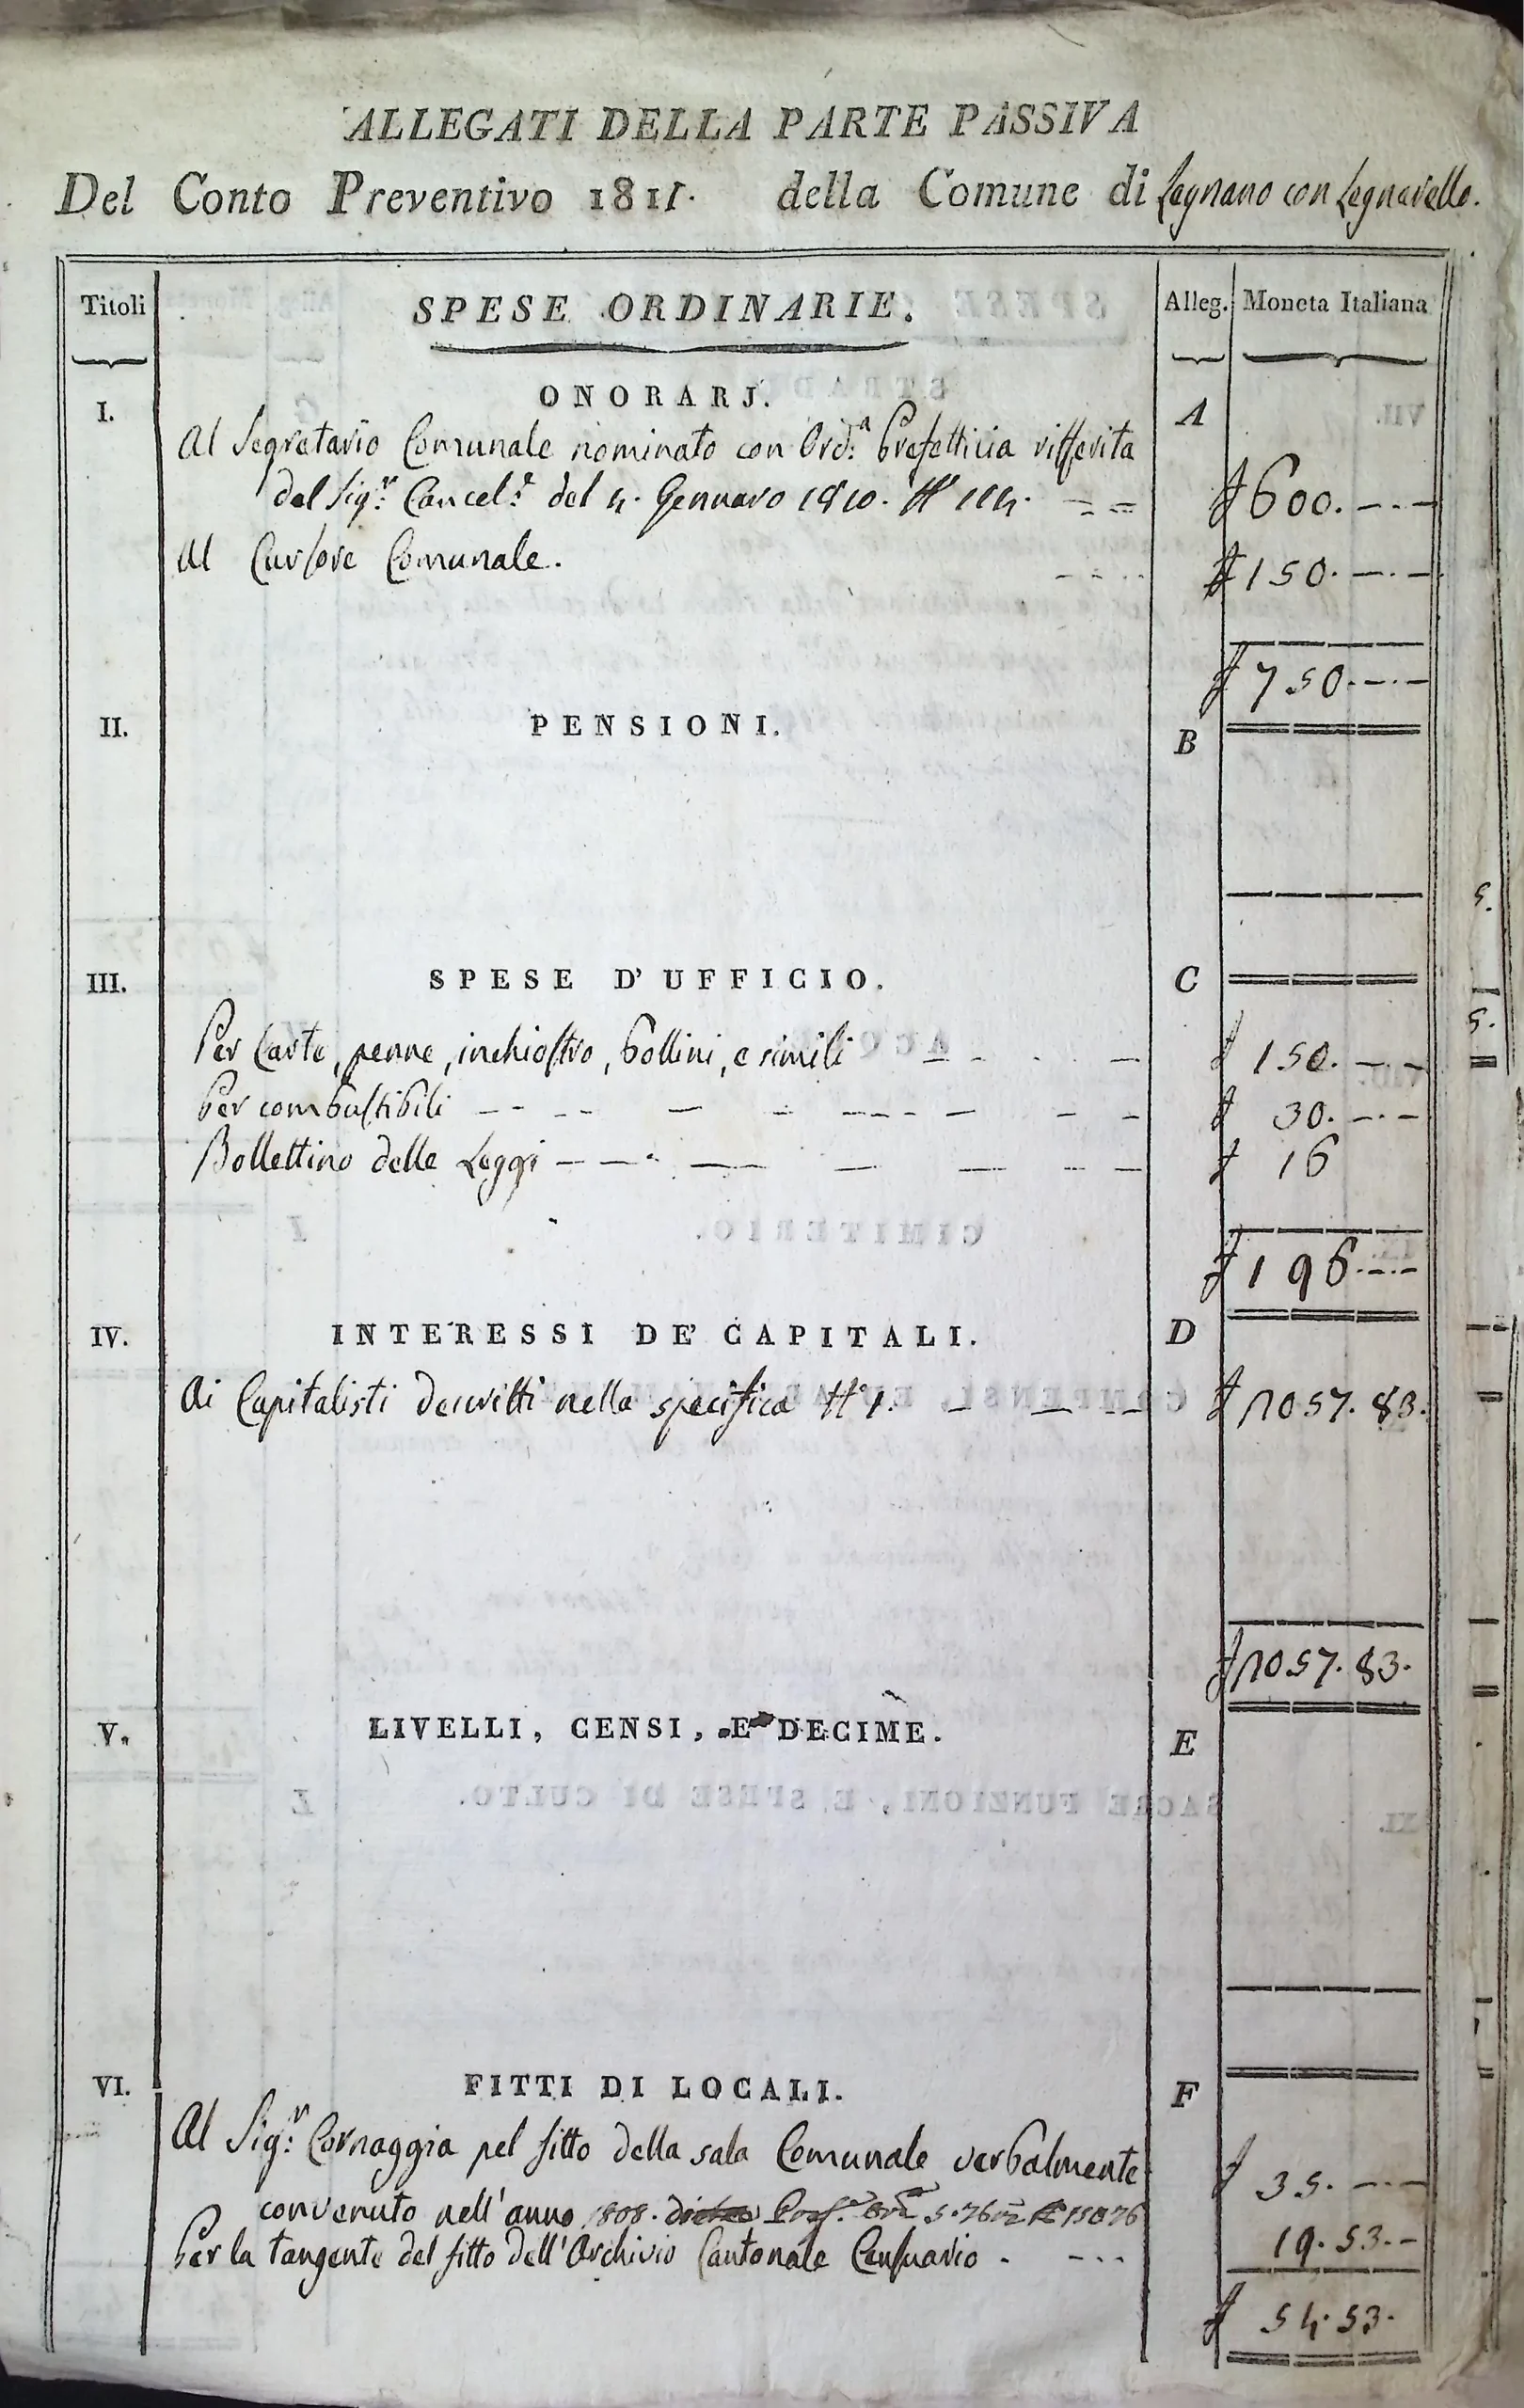 ALLEGATI DELLA PARTE PASSIVA
Del Conto Preventivo 1811. della Comune di Legnano con Legnarello.
Titoli SPESE ORDINARIE. Alleg. Moneta Italiana
I. ONORARJ. A
Al Segretario Comunale nominato con Ord.ª Prefettizia rifferita
dal Sig.r Cancel.e del 4. Gennaro 1810. N° 114. £ 600. — . —
Al Cursore Comunale. £ 150. — . —
£ 750. — . —
II. PENSIONI. B
III. SPESE D'UFFICIO. C
Per Carte, penne, inchiostro, bollini, e simili £ 150. — . —
Per combustibili £ 30. — . —
Bollettino delle Leggi £ 16
£ 196. — . —
IV. INTERESSI DE' CAPITALI. D
Ai Capitalisti descritti nella specifica N° 1. £ 1057. 83.
£ 1057. 83.
V. LIVELLI, CENSI, E DECIME. E
VI. FITTI DI LOCALI. F
Al Sig.r Cornaggia pel fitto della sala Comunale verbalmente £ 35. — . —
convenuto nell'anno 1808. 15076
Per la tangente del fitto dell'Archivio Cantonale Censuario . 19. 53. —
£ 54. 53.